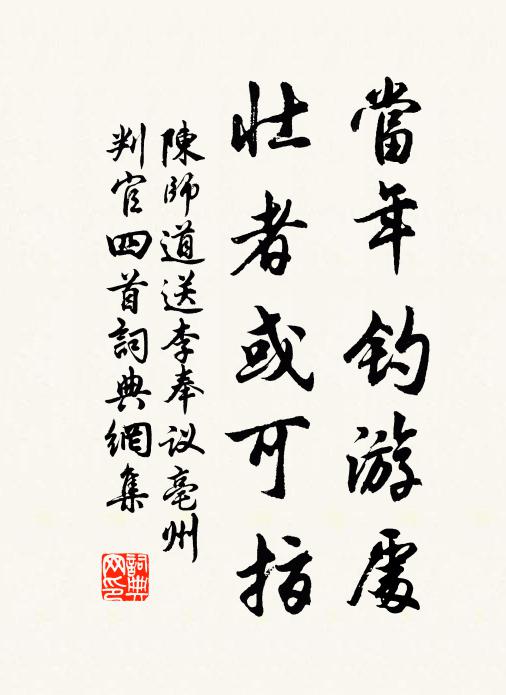 當年釣游處
壯者或可指
陳師道送李奉议亳州
判官四首詞典網集
詞典
网印